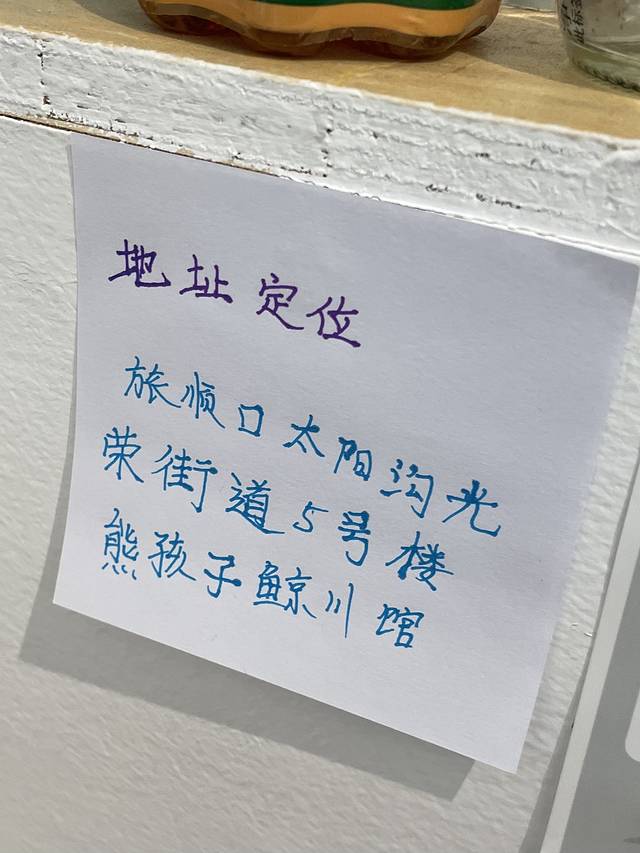 地址定位
旅顺口太阳沟光
荣街道5号楼
熊孩子鲸川馆